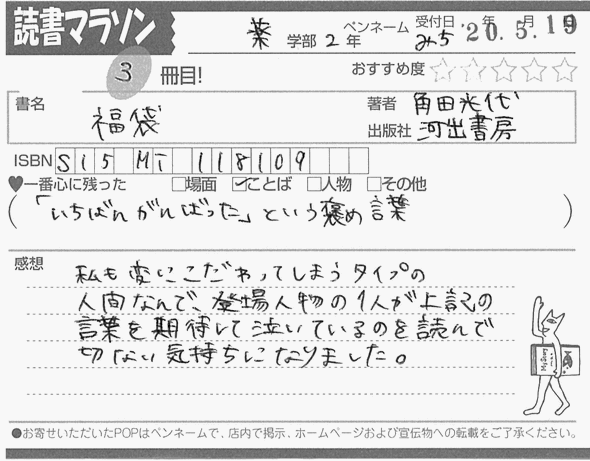 読書マラソン
薬 学部 2年 ペンネーム みち 受付日 20.年5.月19日
3 冊目!
おすすめ度 ☆☆☆☆☆
書名 福袋
著者 角田光代
出版社 河出書房
ISBN S15 MT 118109
♥一番心に残った □場面 ☑ことば □人物 □その他
(「いちばんがんばった」という褒め言葉)
感想
私も変にこだわってしまうタイプの
人間なんで、登場人物の1人が上記の
言葉を期待して泣いているのを読んで
切ない気持ちになりました。
Mystery
●お寄せいただいたPOPはペンネームで、店内で掲示、ホームページおよび宣伝物への転載をご了承ください。